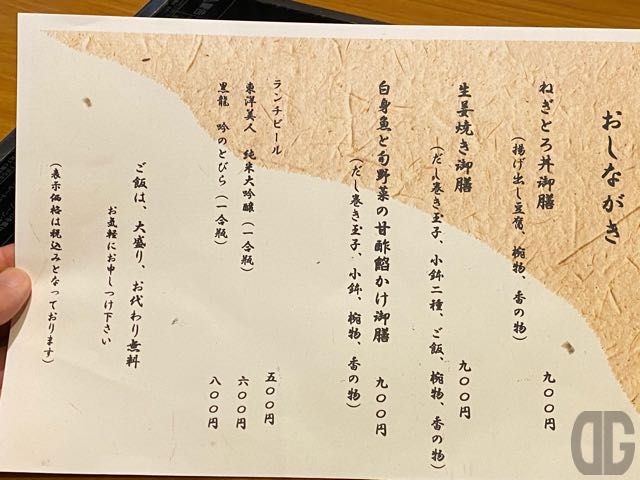 おしながき
ねぎとろ丼御膳 九〇〇円
(揚げ出し豆腐、椀物、香の物)
生姜焼き御膳 九〇〇円
(だし巻き玉子、小鉢二種、ご飯、椀物、香の物)
白身魚と旬野菜の甘酢餡かけ御膳 九〇〇円
(だし巻き玉子、小鉢、椀物、香の物)
ランチビール 五〇〇円
東洋美人 純米大吟醸(一合瓶) 六〇〇円
黒龍 吟のとびら(一合瓶) 八〇〇円
ご飯は、大盛り、お代わり無料
お気軽にお申しつけ下さい
(表示価格は税込みとなっております)
DG